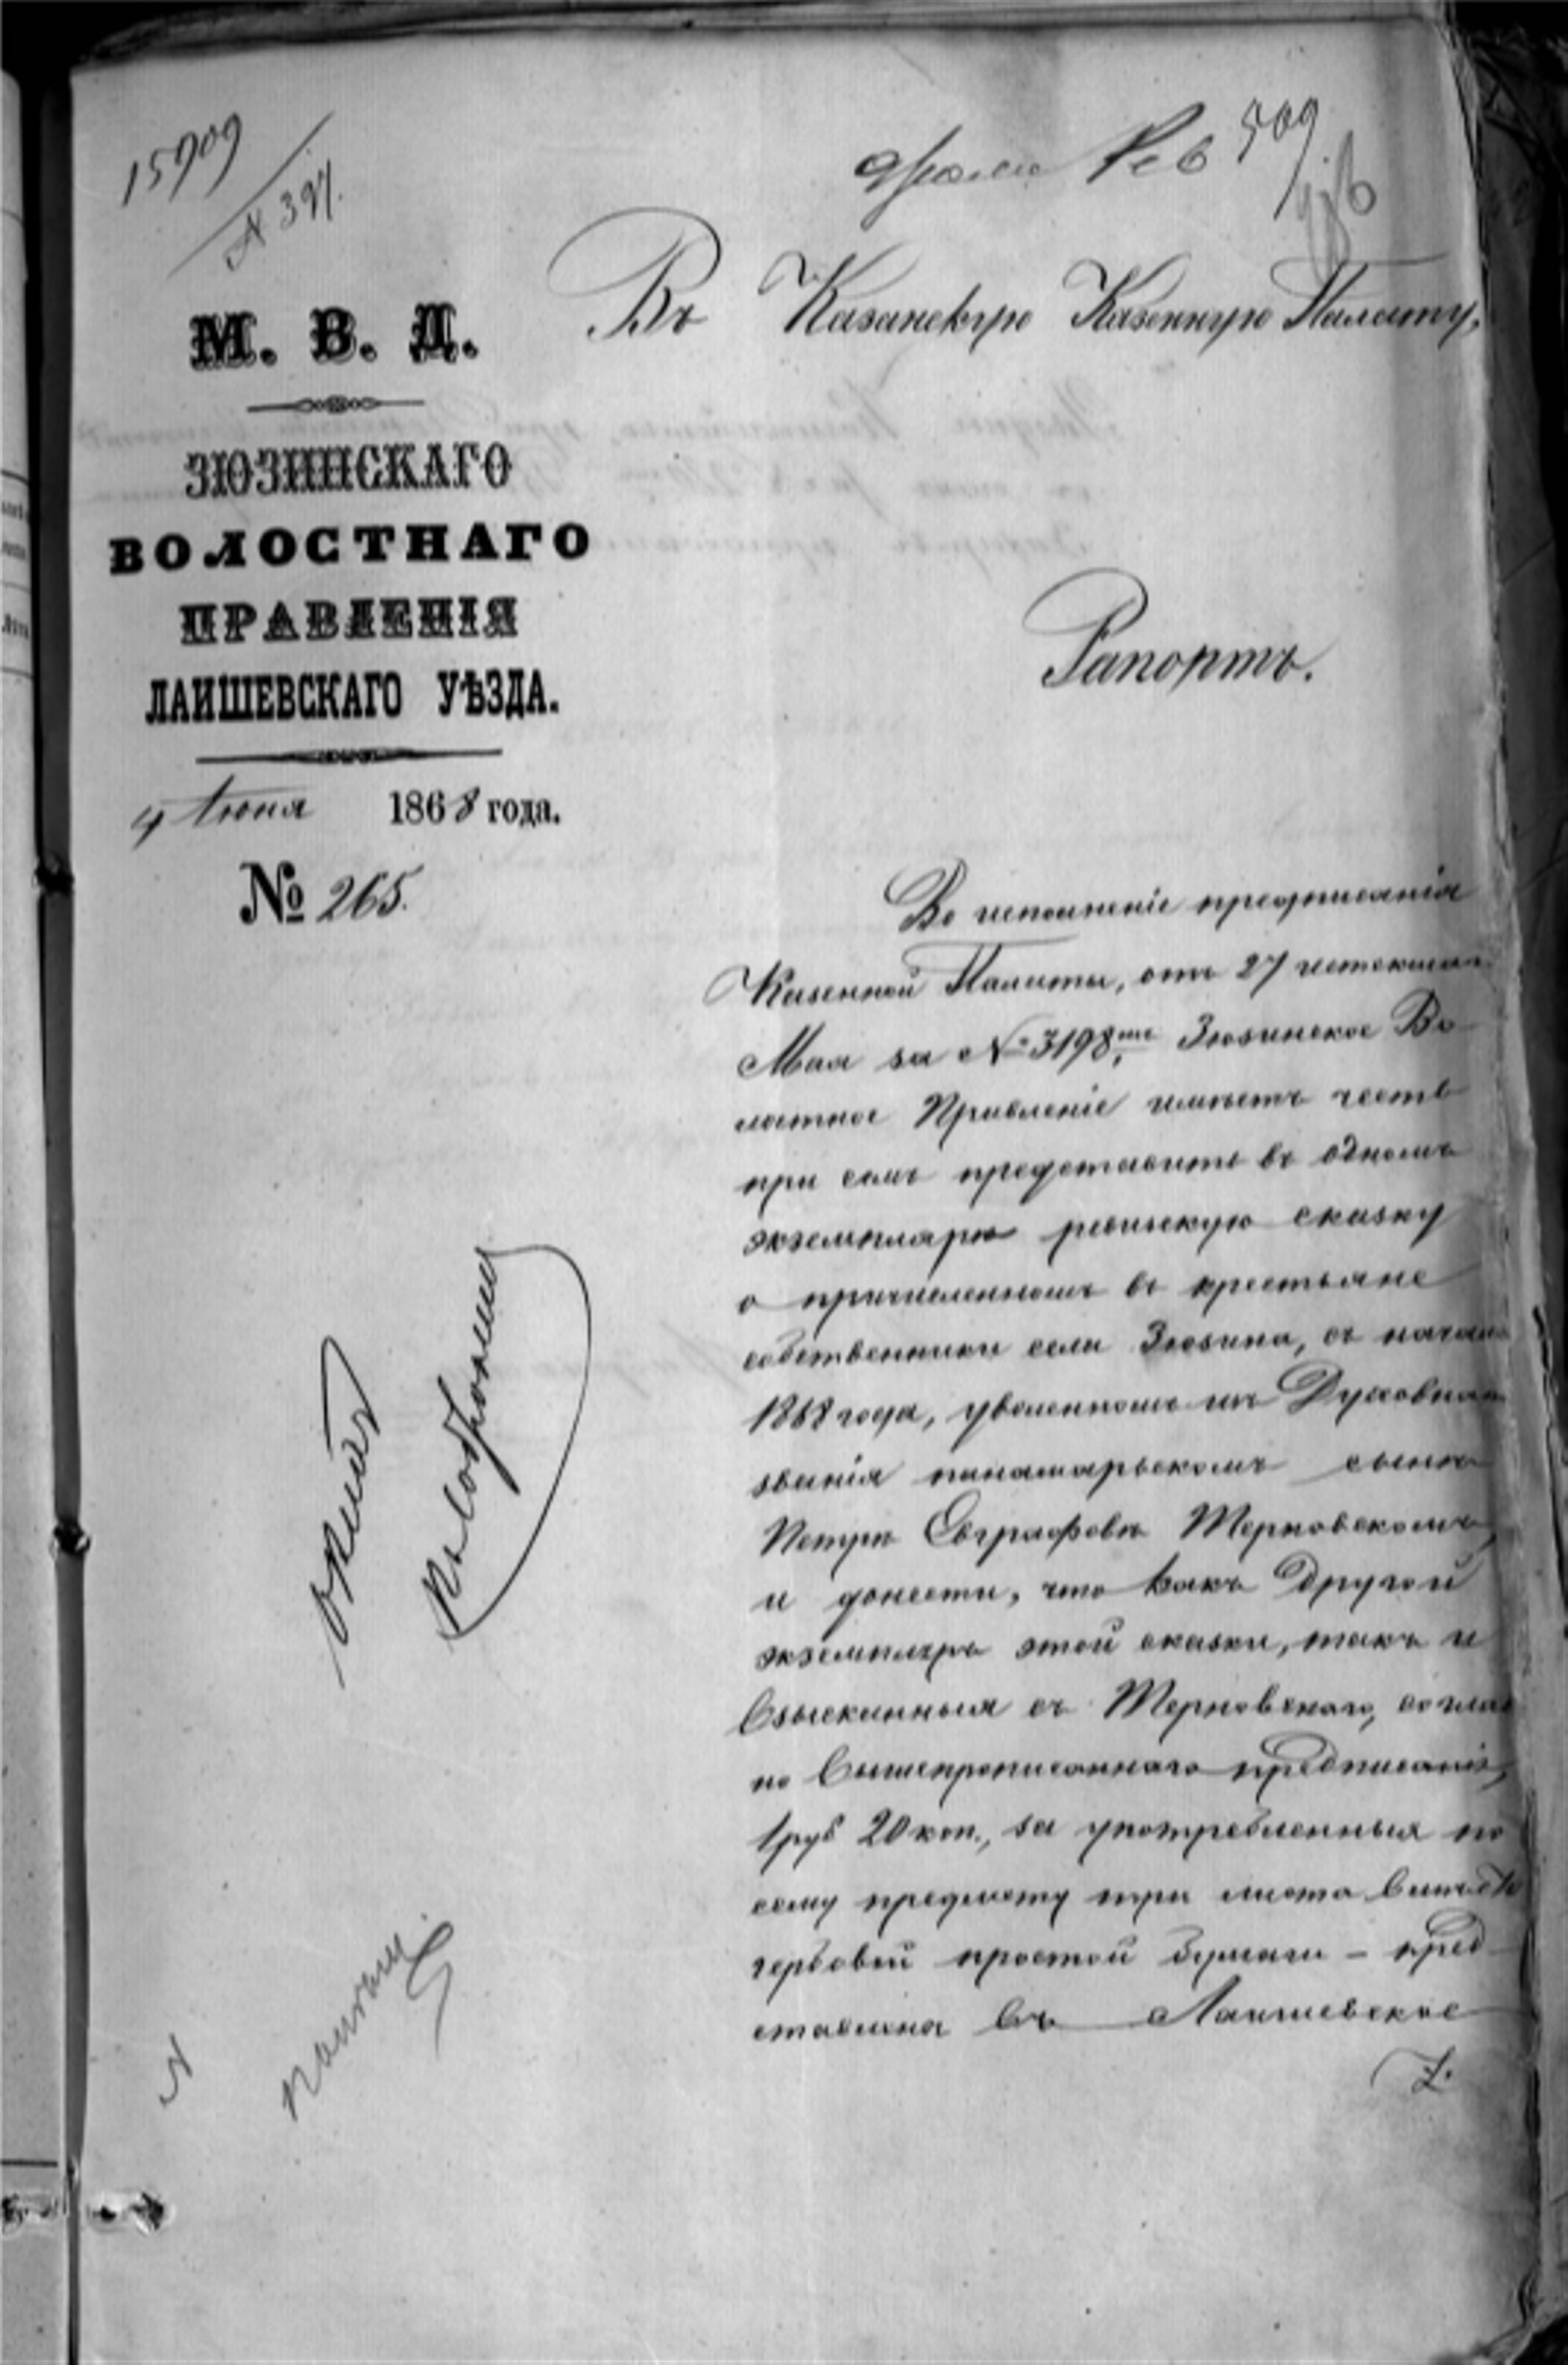 15909
№ 397.
509
М. В. Д.
ЗЮЗИНСКАГО
ВОЛОСТНАГО
ПРАВЛЕНІЯ
ЛАИШЕВСКАГО УѢЗДА.
4 Іюня 1868 года.
№ 265.
Въ Казанскую Казенную Палату,
Рапортъ.
Во исполненіе предписанія
Казенной Палаты, отъ 27 истекшаго
Мая за № 3198, Зюзинское Во
лостное Правленіе имѣетъ честь
при семъ представить въ одномъ
экземплярѣ ревизскую сказку
о причисленномъ въ крестьяне
собственники села Зюзина, съ начала
1868 года, уволенномъ изъ Духовнаго
званія понамарьскомъ сынѣ
Петрѣ Евграфовѣ Терновскомъ,
и донести, что какъ другой
экземпляръ этой сказки, такъ и
взысканныя съ Терновскаго, соглас
но вышепрописаннаго предписанія,
1 руб 20 коп., за употребленныя по
сему предмету три листа вмѣсто
гербовой простой бумаги – пред
ставлена въ Лаишевское